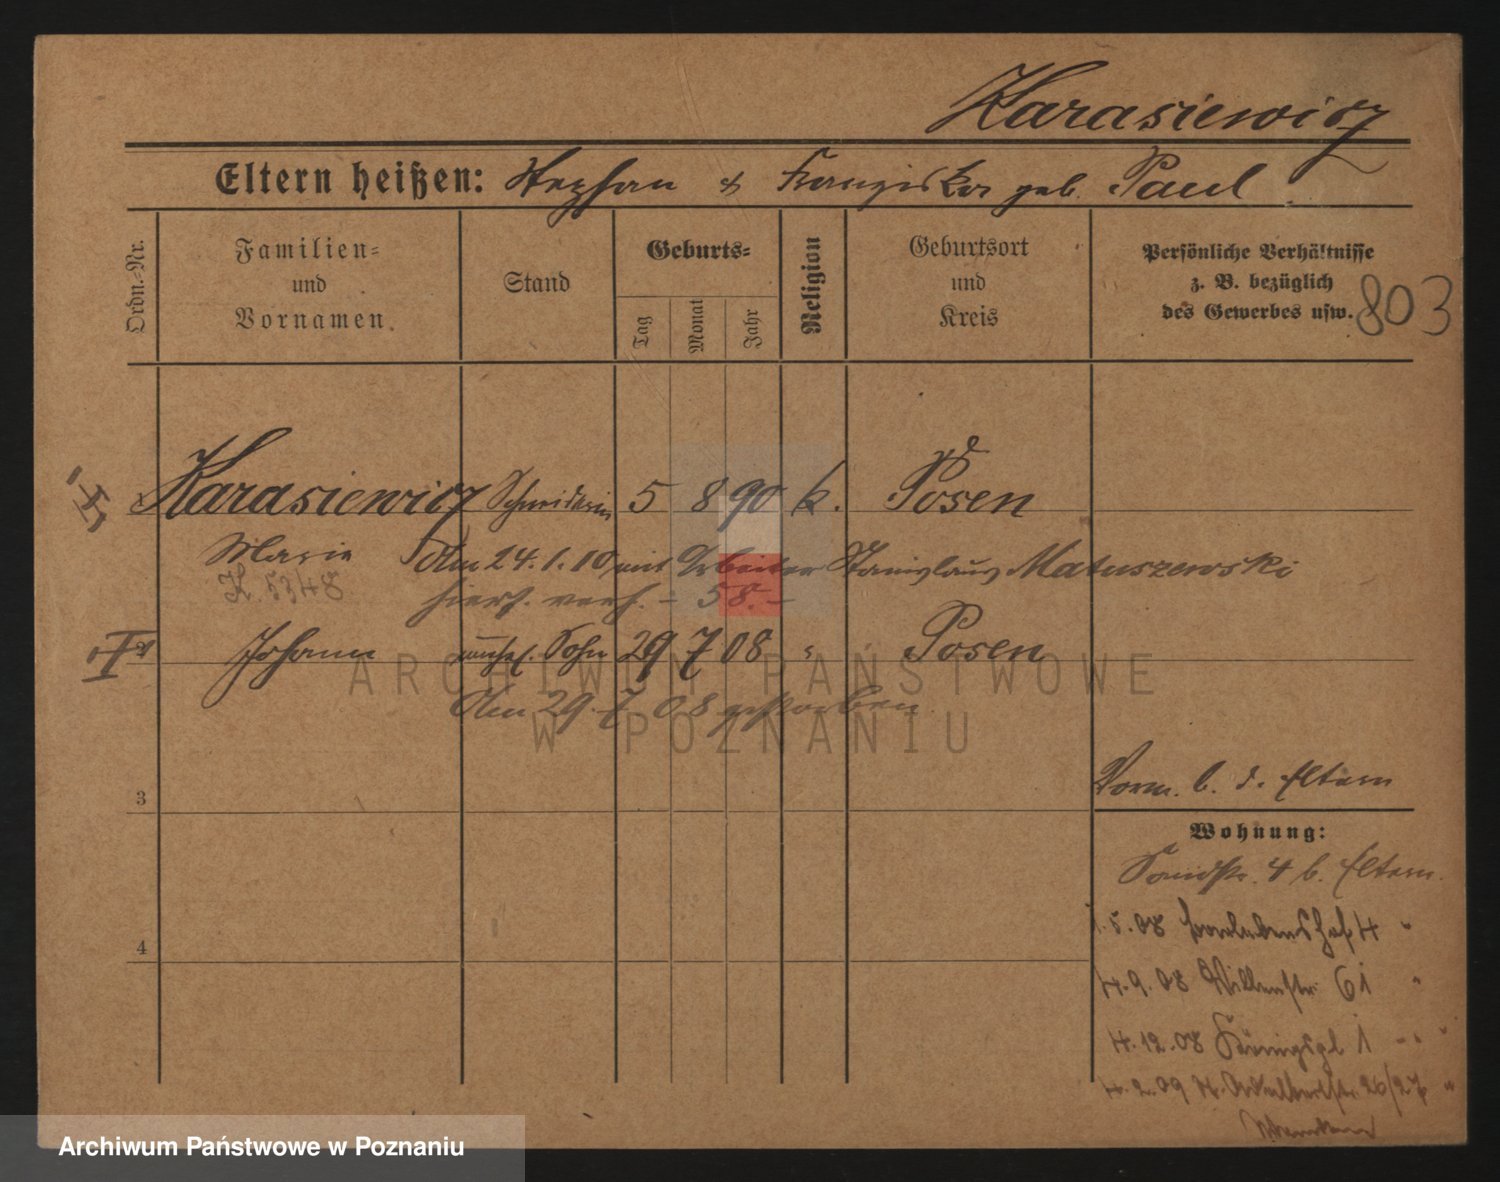 Karasiewicz
Eltern heißen: Stephan & Franziska geb. Paul
Ordn.-Nr.
Familien-
und
Vornamen.
Stand
Geburts-
Tag
Monat
Jahr
Religion
Geburtsort
und
Kreis
Persönliche Verhältnisse
z. B. bezüglich
des Gewerbes usw.
803
Karasiewicz Schneiderin 5 8 90 k. Posen
Marie Am 24.1.10 mit Arbeiter Stanislaus Matuszewski
K. 5348 hier verh. - 58.-
2 Johann unehel. Sohn 29 7 08 " Posen
Am 29.7.08 gestorben
ARCHIWUM PAŃSTWOWE
W POZNANIU
3
Vorm. b. d. Eltern
Wohnung:
4 b. Eltern.
1.5.08 4 "
4.9.08 61 "
4.12.08 Königspl 1 - " "
4.2.09 26/27 "
4
Archiwum Państwowe w Poznaniu